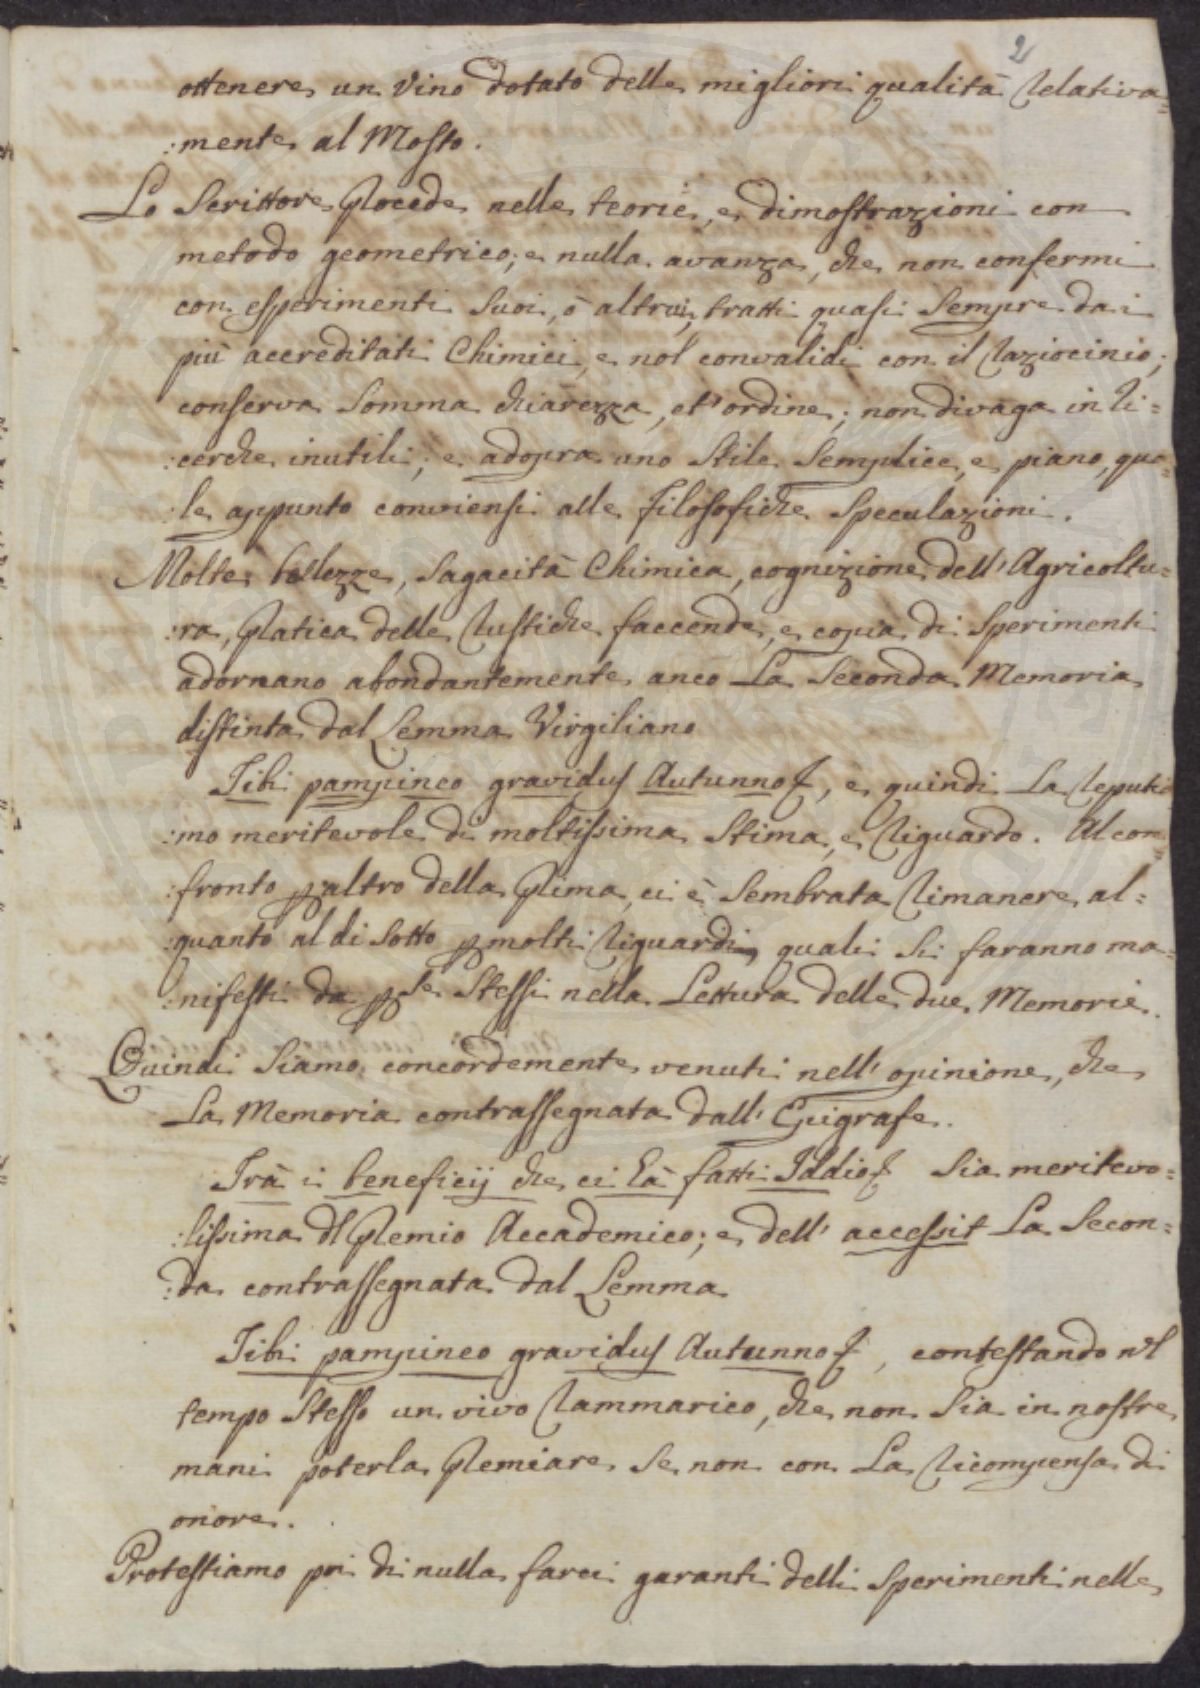 2
ottenere un Vino dotato delle migliori qualità relativa=
:mente al Mosto.
Lo Scrittore procede nelle teorie, e dimostrazioni con
metodo geometrico; e nulla avanza, che non confermi
con esperimenti suoi, ò altrui, tratti quasi sempre dai
più accreditati Chimici, e nol convalidi con il raziocinio;
conserva somma chiarezza, et'ordine; non divaga in ri=
:cerche inutili; e adopra uno stile semplice, e piano, qua=
:le appunto conviensi alle filosofiche speculazioni.
Molte bellezze, sagacità Chimica, cognizione dell'Agricoltu=
:ra, pratica delle rustiche faccende, e copia di sperimenti
adornano abondantemente anco La seconda Memoria
distinta dal Lemma Virgiliano
Tibi pampineo gravidus Autunno, e quindi La reputia
:mo meritevole di moltissima stima, e riguardo. Al con
:fronto p altro della prima, ci è sembrata rimanere al=
:quanto al di sotto p molti riguardi, quali si faranno ma=
:nifesti da p se stessi nella Lettura delle due Memorie.
Quindi siamo concordemente venuti nell'opinione, che
La Memoria contrassegnata dall'Epigrafe.
Trà i beneficij che ci hà fatti Iddio sia meritevo=
:lissima dl premio Accademico; e dell'accessit La secon=
:da contrassegnata dal Lemma
Tibi pampineo gravidus Autunno, contestando nel
tempo stesso un vivo rammarico, che non sia in nostre
mani poterla premiare se non con La ricompensa di
onore.
Protestiamo poi di nulla farci garanti delli sperimenti nelle